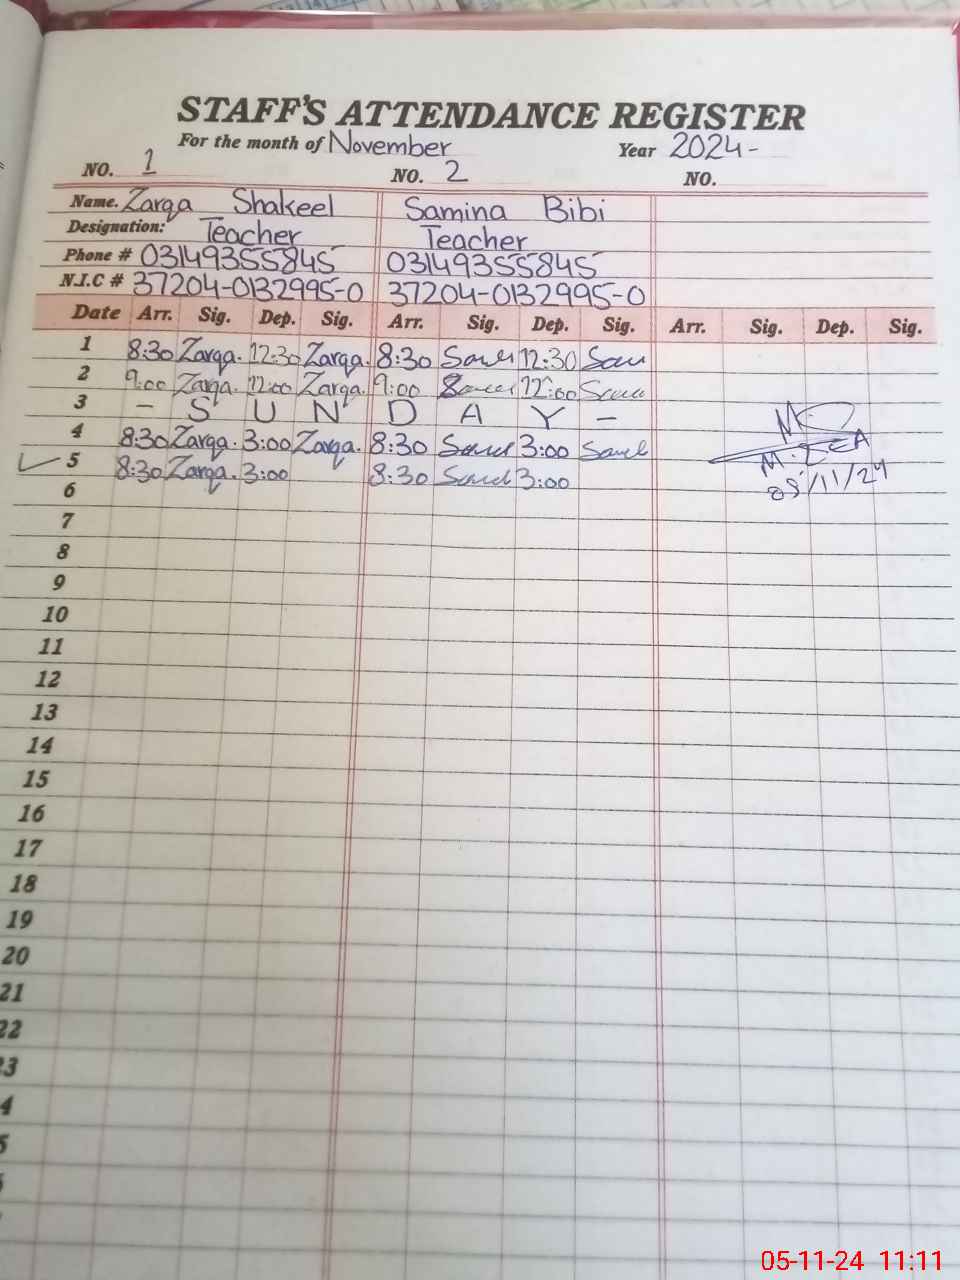 STAFF'S ATTENDANCE REGISTER
For the month of November Year 2024-
NO. 1 NO. 2 NO.
Name. Zarqa Shakeel Samina Bibi
Designation: Teacher Teacher
Phone # 03149355845 03149355845
N.I.C # 37204-0132995-0 37204-0132995-0
Date Arr. Sig. Dep. Sig. Arr. Sig. Dep. Sig. Arr. Sig. Dep. Sig.
1 8:30 Zarqa. 12:30 Zarqa. 8:30 12:30
2 9:00 Zarqa. 12:00 Zarqa. 9:00 12:00
3 - S U N D A Y -
4 8:30 Zarqa. 3:00 Zarqa. 8:30 3:00
5 8:30 Zarqa. 3:00 8:30 3:00
6
7
8
9
10
11
12
13
14
15
16
17
18
19
20
21
22
3
4
5
05-11-24 11:11